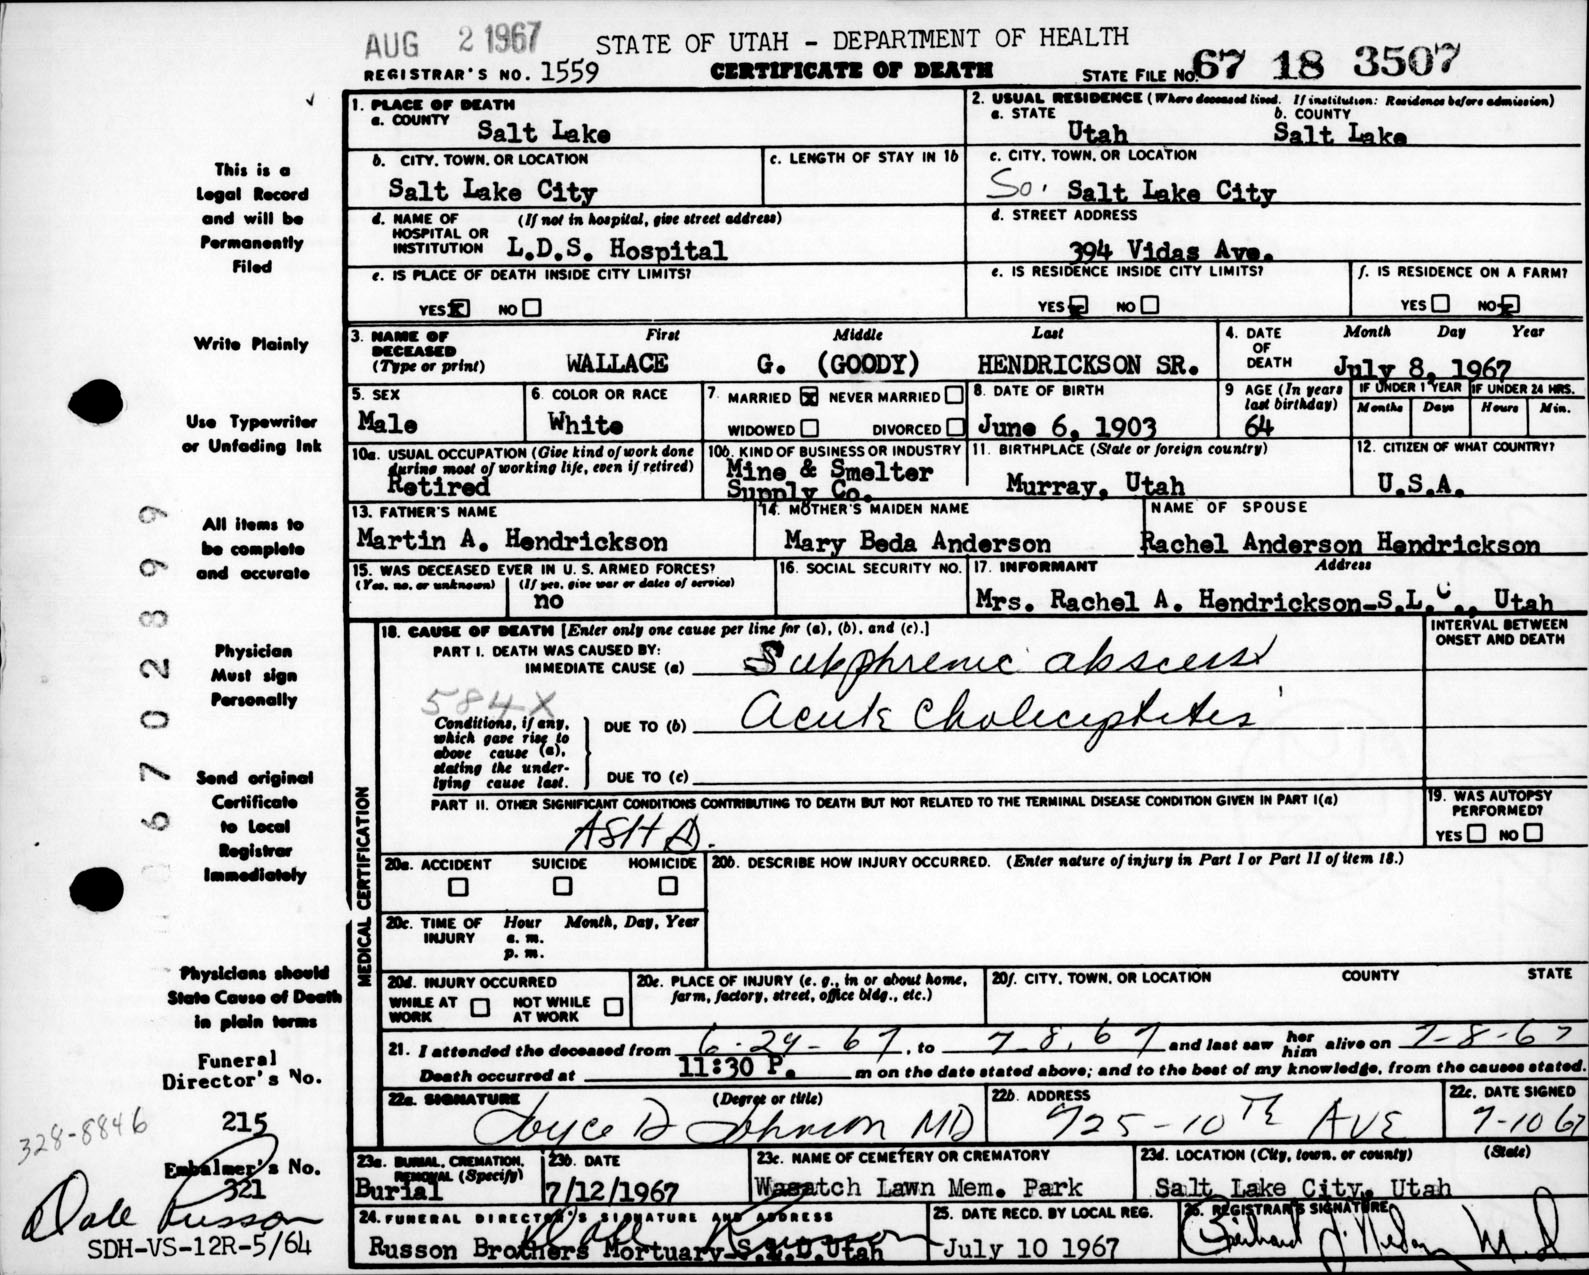 AUG 2 1967 STATE OF UTAH - DEPARTMENT OF HEALTH
REGISTRAR'S NO. 1559 CERTIFICATE OF DEATH STATE FILE NO. 67 18 3507
1. PLACE OF DEATH
a. COUNTY Salt Lake
2. USUAL RESIDENCE (Where deceased lived. If institution: Residence before admission)
a. STATE Utah b. COUNTY Salt Lake
b. CITY, TOWN, OR LOCATION Salt Lake City
c. LENGTH OF STAY IN 1b
c. CITY, TOWN, OR LOCATION So. Salt Lake City
d. NAME OF HOSPITAL OR INSTITUTION (If not in hospital, give street address) L.D.S. Hospital
d. STREET ADDRESS 394 Vidas Ave.
e. IS PLACE OF DEATH INSIDE CITY LIMITS?
YES x NO
e. IS RESIDENCE INSIDE CITY LIMITS?
YES x NO
f. IS RESIDENCE ON A FARM?
YES NO x
3. NAME OF DECEASED (Type or print) First Middle Last
WALLACE G. (GOODY) HENDRICKSON SR.
4. DATE OF DEATH Month Day Year
July 8, 1967
5. SEX Male
6. COLOR OR RACE White
7. MARRIED x NEVER MARRIED
WIDOWED DIVORCED
8. DATE OF BIRTH June 6, 1903
9 AGE (In years last birthday) 64
IF UNDER 1 YEAR Months Days
IF UNDER 24 HRS. Hours Min.
10a. USUAL OCCUPATION (Give kind of work done during most of working life, even if retired)
Retired
10b. KIND OF BUSINESS OR INDUSTRY
Mine & Smelter
Supply Co.
11. BIRTHPLACE (State or foreign country)
Murray, Utah
12. CITIZEN OF WHAT COUNTRY?
U.S.A.
13. FATHER'S NAME
Martin A. Hendrickson
14. MOTHER'S MAIDEN NAME
Mary Beda Anderson
NAME OF SPOUSE
Rachel Anderson Hendrickson
15. WAS DECEASED EVER IN U. S. ARMED FORCES?
(Yes, no, or unknown) (If yes, give war or dates of service)
no
16. SOCIAL SECURITY NO.
17. INFORMANT Address
Mrs. Rachel A. Hendrickson-S.L.C., Utah
MEDICAL CERTIFICATION
18. CAUSE OF DEATH [Enter only one cause per line for (a), (b), and (c).]
INTERVAL BETWEEN ONSET AND DEATH
PART I. DEATH WAS CAUSED BY:
IMMEDIATE CAUSE (a) Subphrenic abscess
584X
Conditions, if any, which gave rise to above cause (a), stating the underlying cause last.
DUE TO (b) Acute Cholecystitis
DUE TO (c)
PART II. OTHER SIGNIFICANT CONDITIONS CONTRIBUTING TO DEATH BUT NOT RELATED TO THE TERMINAL DISEASE CONDITION GIVEN IN PART I(a)
ASHD.
19. WAS AUTOPSY PERFORMED?
YES NO
20a. ACCIDENT SUICIDE HOMICIDE
20b. DESCRIBE HOW INJURY OCCURRED. (Enter nature of injury in Part I or Part II of item 18.)
20c. TIME OF INJURY Hour Month, Day, Year
a. m.
p. m.
20d. INJURY OCCURRED
WHILE AT WORK NOT WHILE AT WORK
20e. PLACE OF INJURY (e. g., in or about home, farm, factory, street, office bldg., etc.)
20f. CITY, TOWN, OR LOCATION COUNTY STATE
21. I attended the deceased from 6-24-67, to 7-8-67 and last saw her him alive on 7-8-67
Death occurred at 11:30 P. m on the date stated above; and to the best of my knowledge, from the causes stated.
22a. SIGNATURE (Degree or title)
Joyce D Johnson MD
22b. ADDRESS
725-10TH AVE
22c. DATE SIGNED
7-10 67
23a. BURIAL, CREMATION, REMOVAL (Specify)
Burial
23b. DATE
7/12/1967
23c. NAME OF CEMETERY OR CREMATORY
Wasatch Lawn Mem. Park
23d. LOCATION (City, town, or county) (State)
Salt Lake City, Utah
24. FUNERAL DIRECTOR'S SIGNATURE AND ADDRESS
Dale Russon
Russon Brothers Mortuary-S.L.C.Utah
25. DATE RECD. BY LOCAL REG.
July 10 1967
26. REGISTRAR'S SIGNATURE
M.D.
This is a
Legal Record
and will be
Permanently
Filed
Write Plainly
Use Typewriter
or Unfading Ink
All items to
be complete
and accurate
Physician
Must sign
Personally
Send original
Certificate
to Local
Registrar
Immediately
Physicians should
State Cause of Death
in plain terms
Funeral
Director's No.
215
328-8846
Embalmer's No.
321
Dale Russon
SDH-VS-12R-5/64
67028999